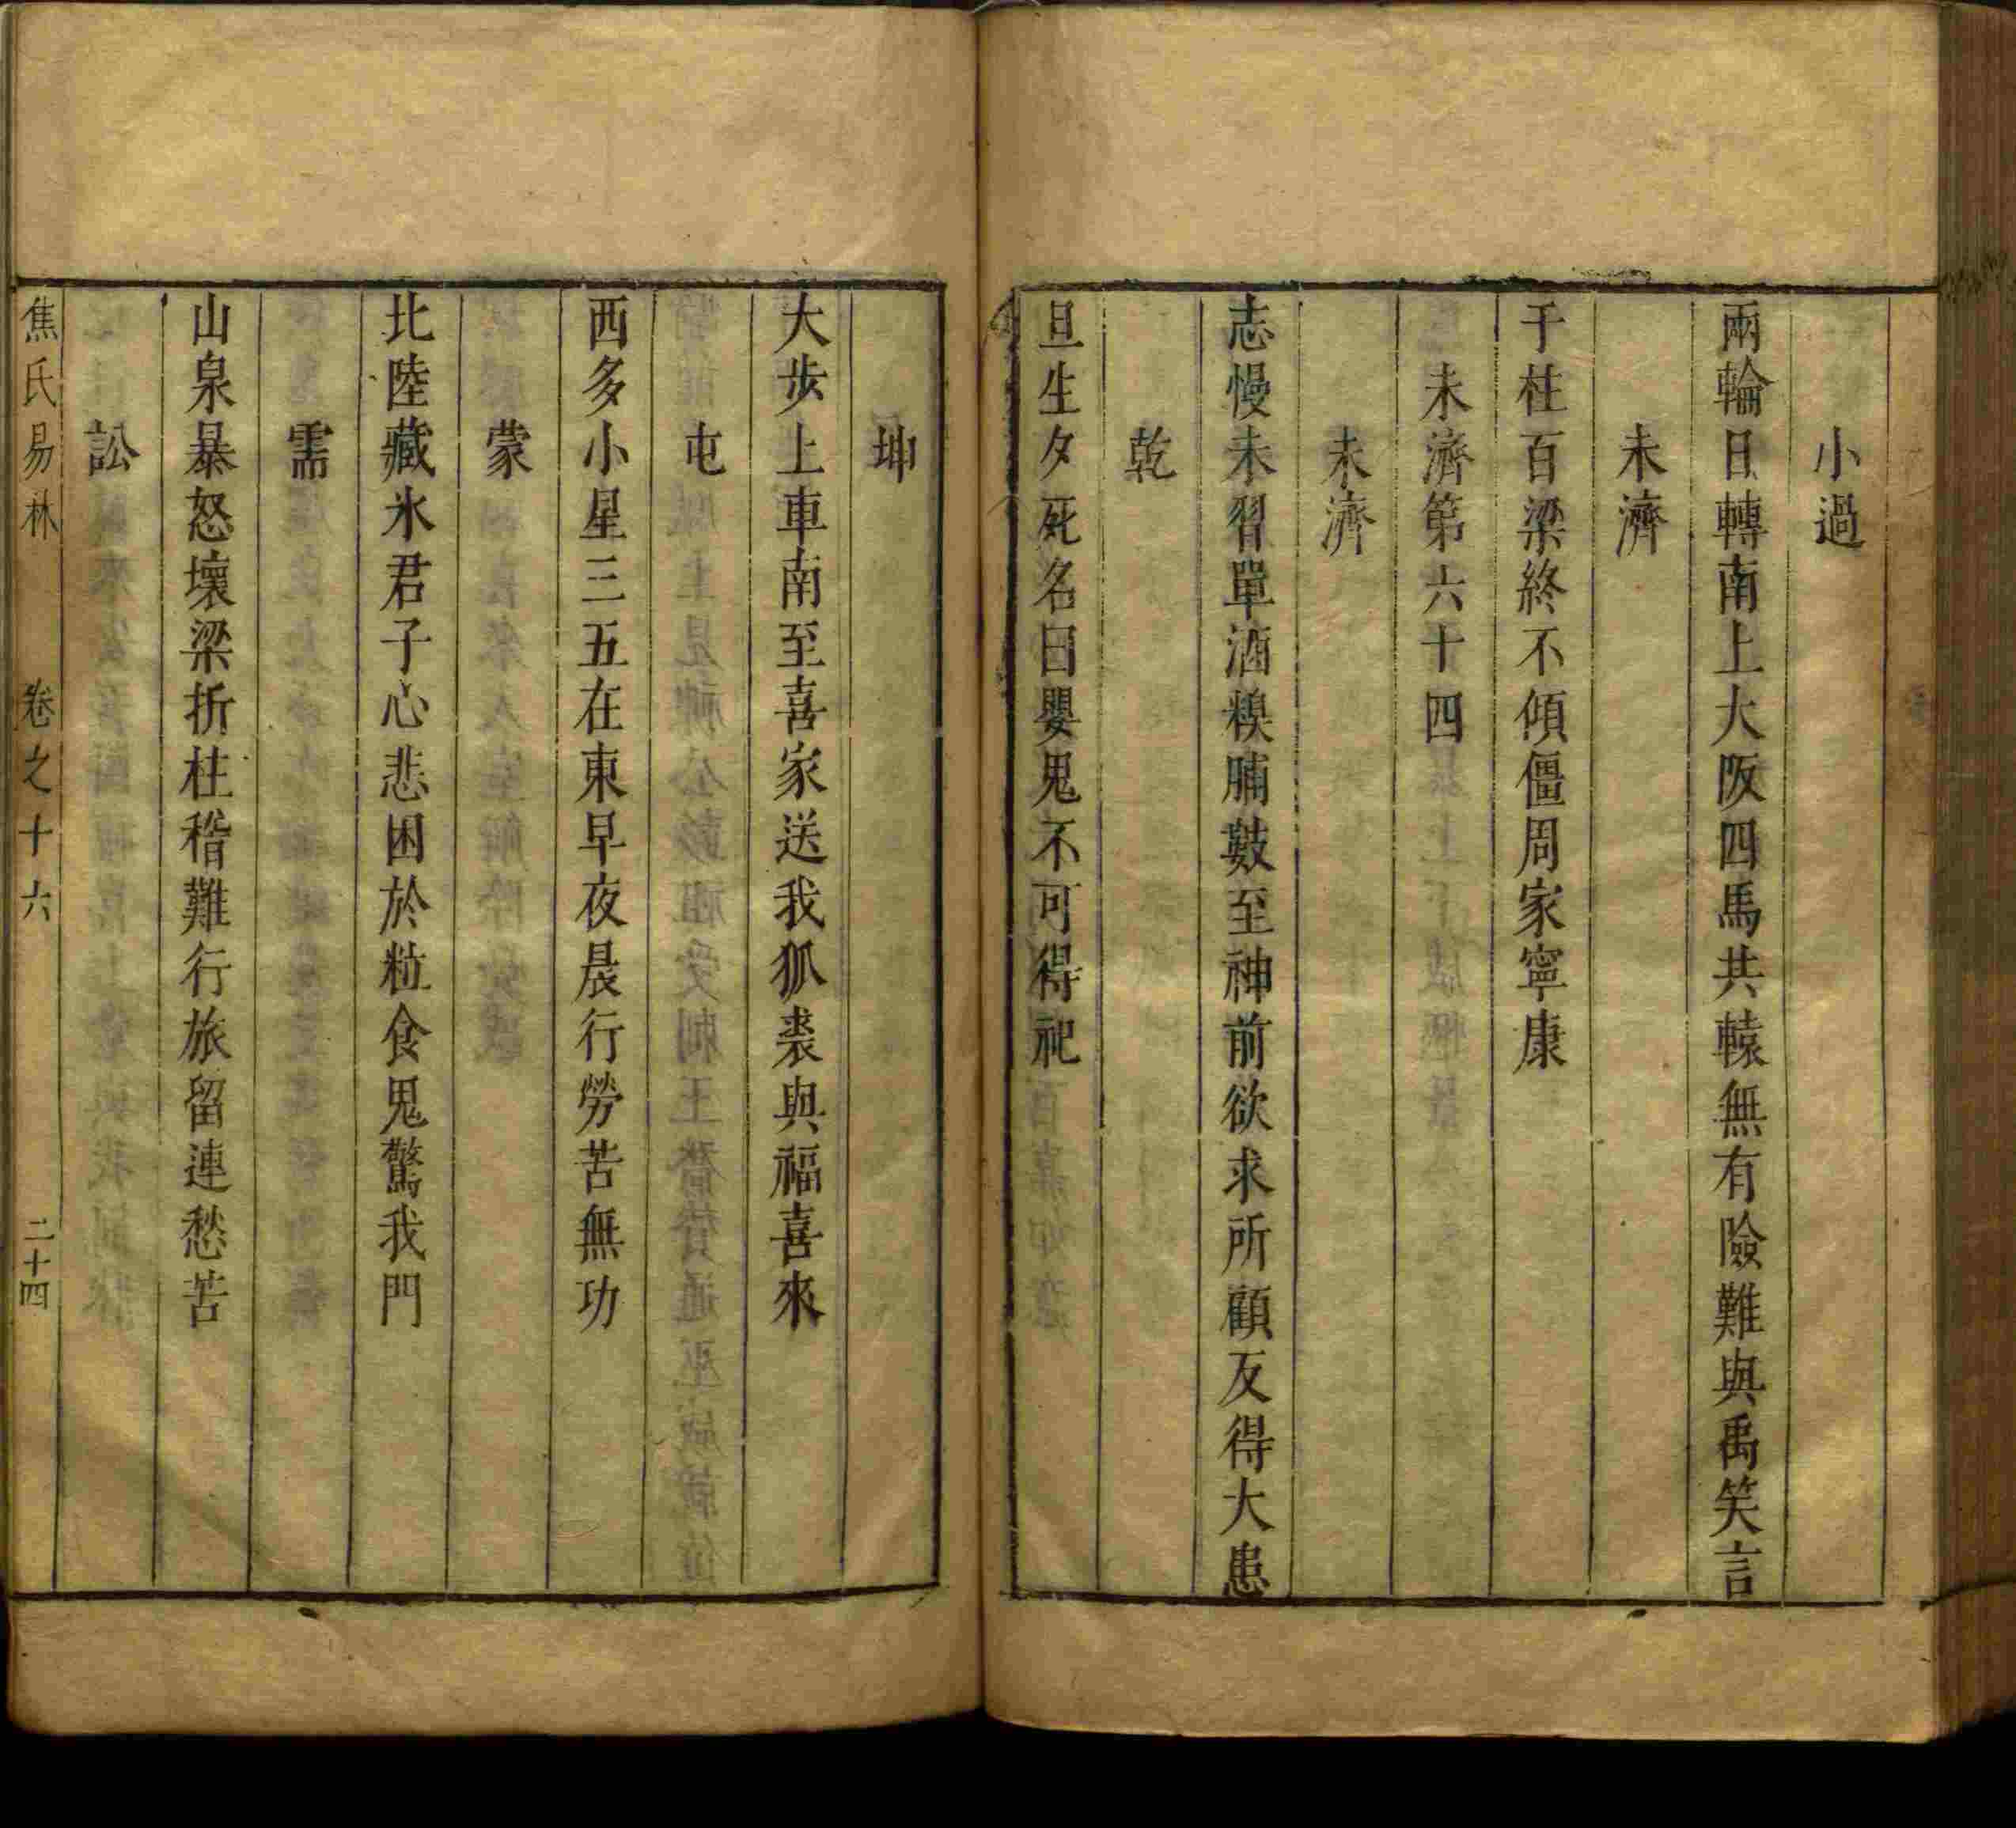 小過
兩輪日轉南上大阪四馬共轅無有險難與禹笑言
未濟
千柱百梁終不傾僵周家寧康
未濟第六十四
未濟
志慢未習單酒糗脯數至神前欲求所顧反得大患
乾
旦生夕死名曰嬰鬼不可得祀
坤
大步上車南至喜家送我狐裘與福喜來
屯
西多小星三五在東早夜晨行勞苦無功
蒙
北陸藏氷君子心悲困於粒食鬼驚我門
需
山泉暴怒壞梁折柱稽難行旅留連愁苦
訟
焦氏易林 卷之十六 二十四